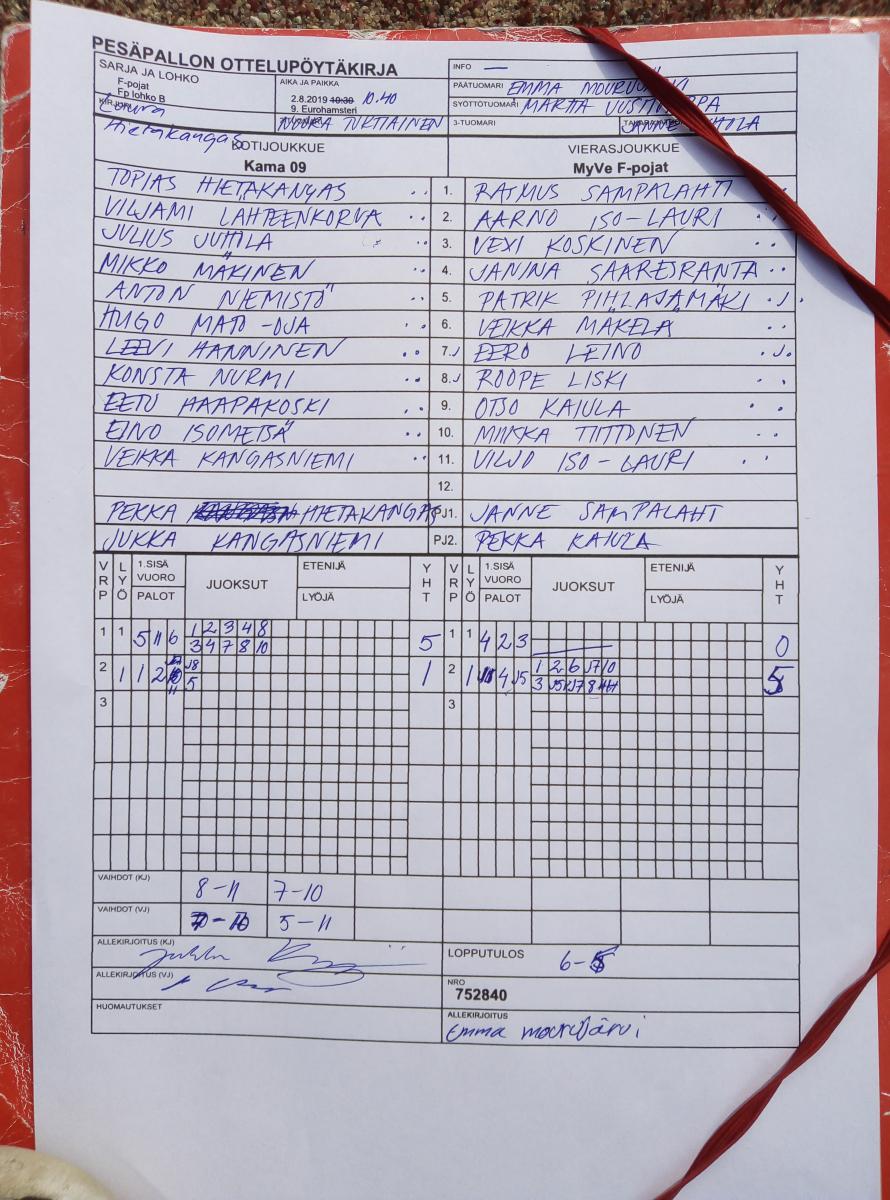 PESÄPALLON OTTELUPÖYTÄKIRJA
SARJA JA LOHKO
F-pojat
Fp lohko B
AIKA JA PAIKKA
2.8.2019 10:30 10.40
9. Eurohamsteri
INFO —
PÄÄTUOMARI EMMA
SYÖTTÖTUOMARI MARTTA
3-TUOMARI
JANNE JUHILA
KIRJURI
Laura
Hietakangas
NOORA TURTIAINEN
KOTIJOUKKUE
Kama 09
VIERASJOUKKUE
MyVe F-pojat
TOPIAS HIETAKANGAS 1. RASMUS SAMPALAHTI
VILJAMI LAHTEENKORVA 2. AARNO ISO-LAURI
JULIUS JUHILA 3. VEXI KOSKINEN
MIKKO MÄKINEN 4. JANINA SAARESRANTA
ANTON NIEMISTÖ 5. PATRIK PIHLAJAMÄKI
HUGO MATO-OJA 6. VEIKKA MÄKELÄ
LEEVI HANNINEN 7. EERO LEINO
KONSTA NURMI 8. ROOPE LISKI
EETU HAAPAKOSKI 9. OTSO KAIULA
EINO ISOMETSÄ 10. MIIKKA TIITTONEN
VEIKKA KANGASNIEMI 11. VILJO ISO-LAURI
12.
PEKKA HIETAKANGAS PJ1. JANNE SAMPALAHTI
JUKKA KANGASNIEMI PJ2. PEKKA KAIULA
VRP LYÖ 1.SISÄ VUORO PALOT JUOKSUT ETENIJÄ LYÖJÄ YHT VRP LYÖ 1.SISÄ VUORO PALOT JUOKSUT ETENIJÄ LYÖJÄ YHT
1 1 5 11 6 1 2 3 4 8 5 1 1 4 2 3 0
3 4 7 8 10
2 1 1 2 11 J8 1 2 1 4 J5 1 2 6 J7 10 5
5 3 J5 J7 8
3 3
VAIHDOT (KJ) 8-11 7-10
VAIHDOT (VJ) 5-11
ALLEKIRJOITUS (KJ)
LOPPUTULOS 6-5
ALLEKIRJOITUS (VJ)
NRO
752840
HUOMAUTUKSET
ALLEKIRJOITUS
Emma mourujärvi